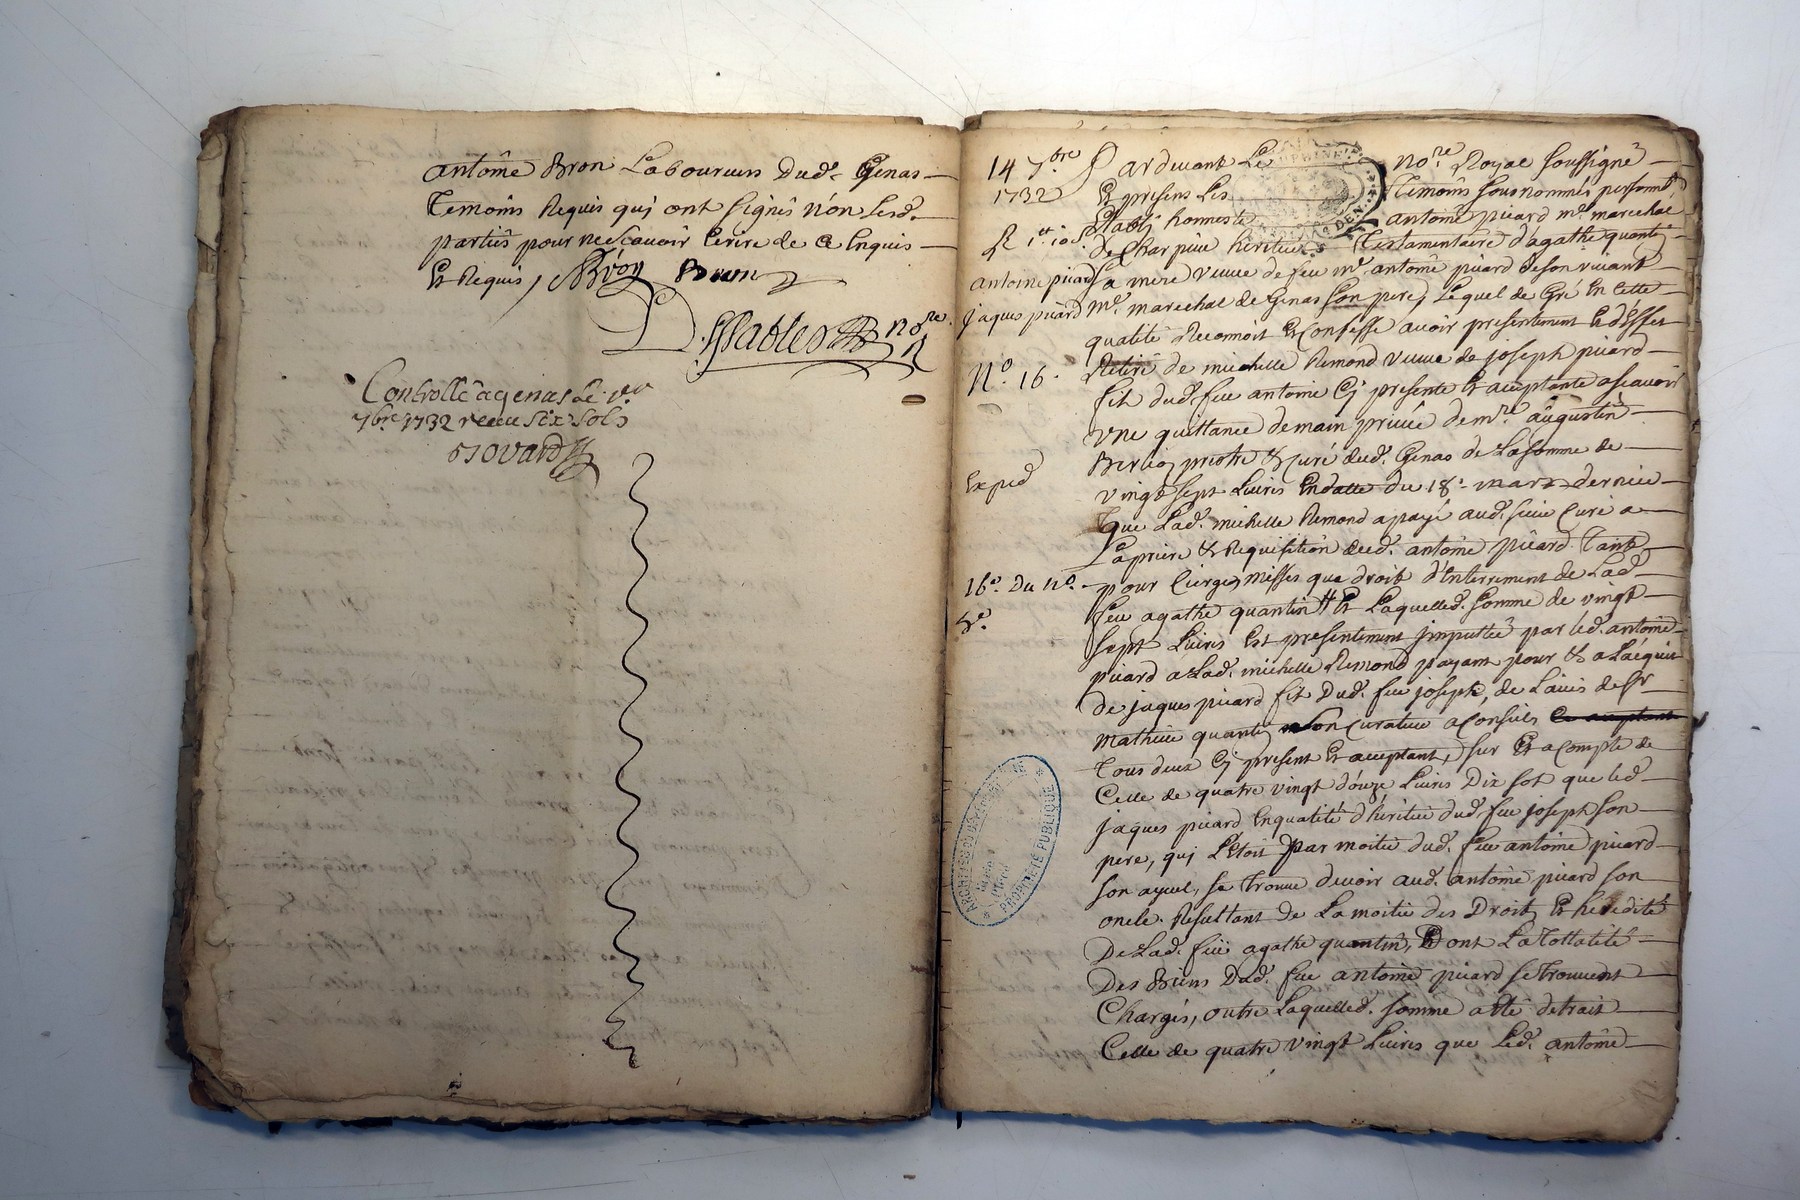 antoîne Bron Laboureurs dud.t Genas
Temoins Requis quj ont signés n'on lesd.
partiës pour ne scavoir écrire de ce Enquis
Et Requis, Bron
DesSables no.re
Controllé a genas le 1.er
7bre 1732 receu six sols
14 7.bre
1732
R 1.tt 10 s
Antoine picard
jaques picard
N.o 16.
Exped
16.e Du n.o
Par devant Le no.re Royal soussigné
Et presens Les Temoins sousnommés personnel
Etablj honneste antoine picard m.e marechal
De Charpieu héritier Testamentaire d'agathe quantin
sa mere veuve de feu m.e antoîne picard de son vivant
m.e marechal de Genas son pere, Lequel de Gré En Cette
qualité Reconnoit Et Confesse avoir presentement Et d'Effet
Retiré de michelle Remond veuve de joseph picard
fils dud. feu antoine Cj presente Et acceptante ascavoir
vne quittance de main privée de m.re augustin
Berlioz prestre & Curé dud. Genas de La somme de
vingt sept Livres En datte du 18.e mars dernier
Que Lad. michelle Remond a payé aud. sieur Curé a
La priere & Requisition dud. antoîne picard Tant
pour Cierges, messes que droit d'Enterrement de Lad.
feu agathe quantin Et Laquelled. somme de vingt
sept Livres Est presentement jmputtée par led. antoine
picard a Lad. michelle Remond payant pour & a L'acquit
de jaques picard fils Dud. feu joseph, de L'avis de Sr
mathieu quantin son Curateur a Conseils
Tous deux Cj present Et acceptant, sur Et a Compte de
Celle de quatre vingt d'ouze Livres Dix sols que led.
jaques picard En qualité d'héritier dud. feu joseph son
pere, quj L'étoit par moitié dud. feu antoîne picard
son ayeul, se trouve devoir aud. antoîne picard son
oncle. Resultant de La moitié des Droits Et hérédité
De Lad. feüe agathe quantin, Dont La Tottalité
Des Biens Dud. feu antoine picard se trouvent
Chargés, outre Laquelled. somme a été detrait
Celle de quatre vingt Livres que Led. antoîne
ARCHIVES DU DÉPARTEMENT
PROPRIÉTÉ PUBLIQUE